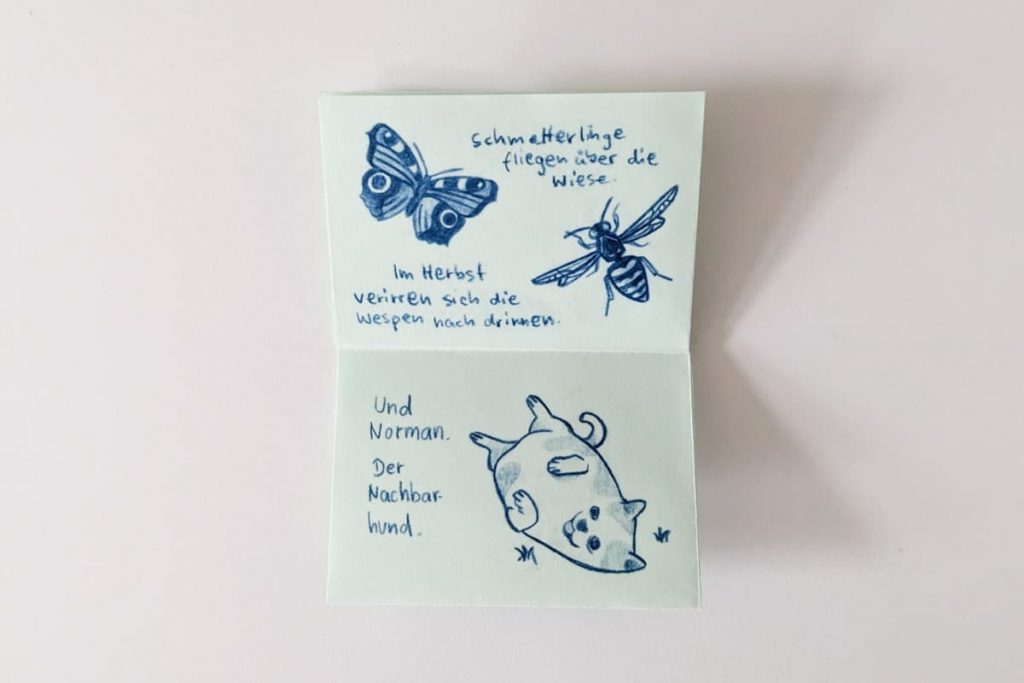 Schmetterlinge
fliegen über die
Wiese.
Im Herbst
verirren sich die
Wespen nach drinnen.
Und
Norman.
Der
Nachbar-
hund.